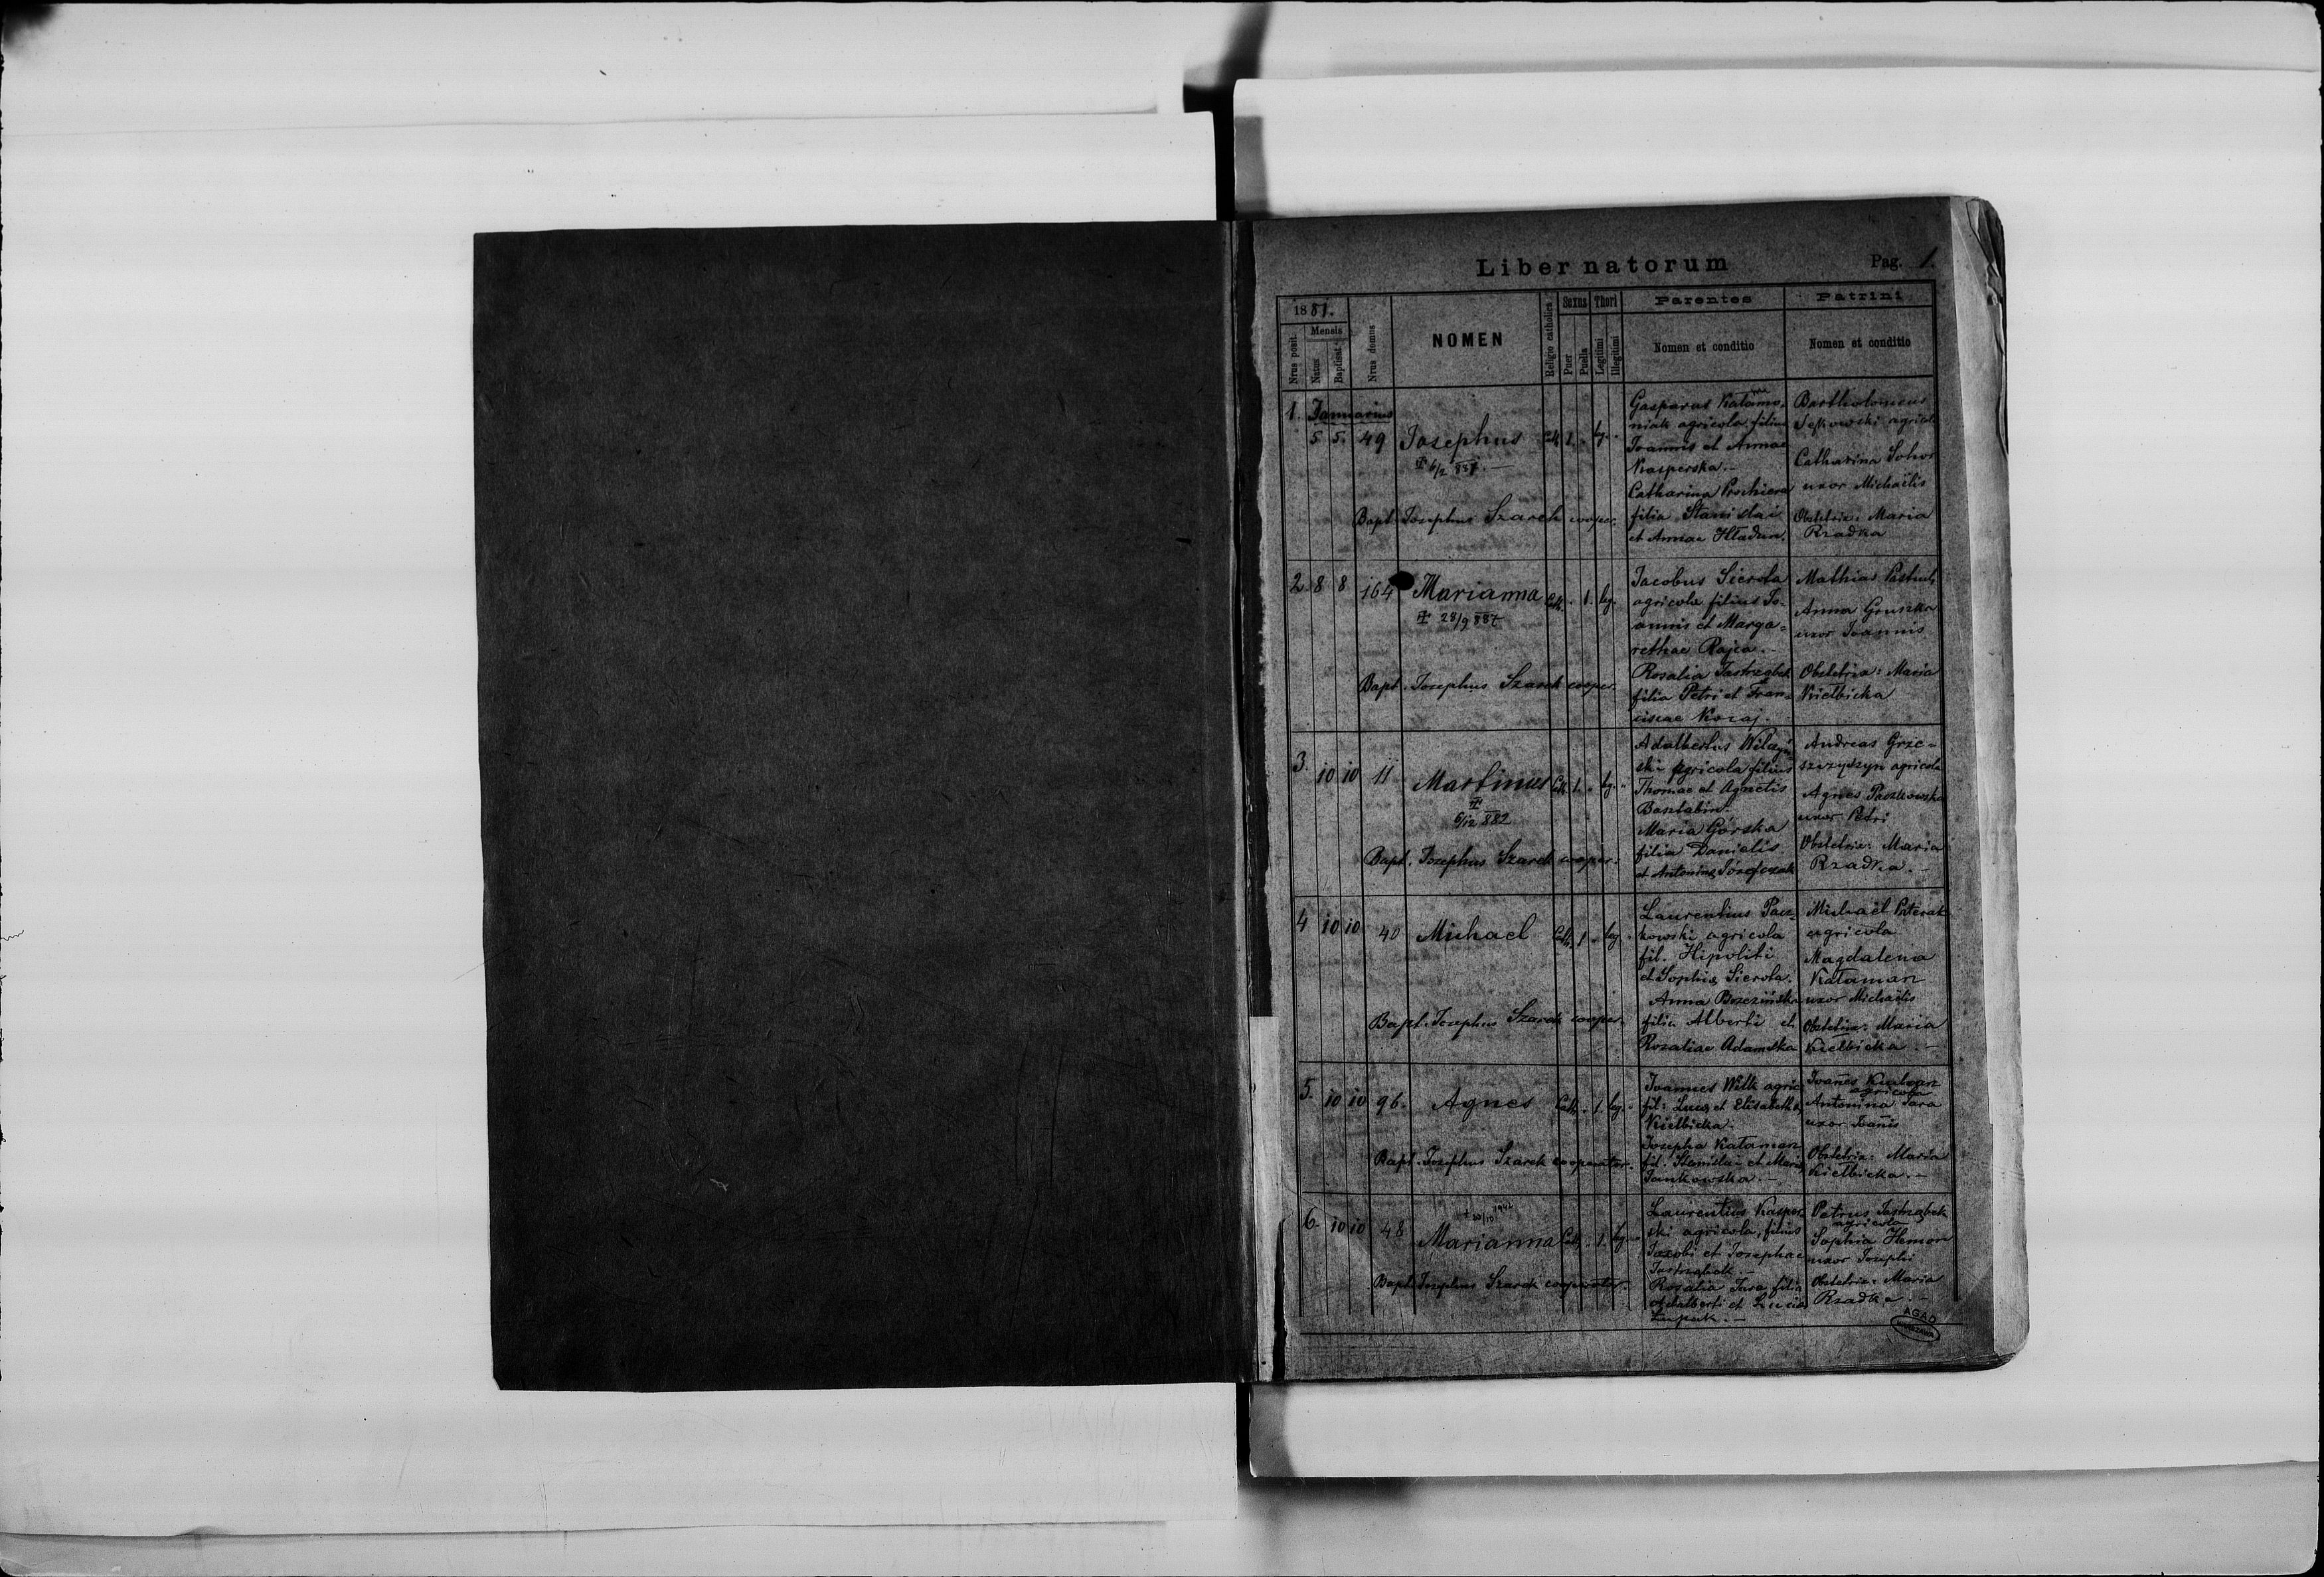 Liber natorum
Pag. 1.
1881.
Mensis
Nrus posit.
Natus
Baptisat.
Nrus domus
NOMEN
Religio catholica
Sexus
Puer
Puella
Thori
Legitimi
Illegitimi
Parentes
Nomen et conditio
Patrini
Nomen et conditio
1. Januarius
5 5. 49 Josephus Cath. 1 - leg. -
6/2
Bapt. Josephus Szarek cooper.
Gasparus
niak agricola filius
Joannis et Annae
Kasperska.-
Catharina
filia Stanislai
et Annae Hładun.
Bartholomeus
agricola
Catharina
uxor Michaëlis
Obstetrix: Maria
Rzadka
2. 8 8 164 Marianna Cath. - 1. leg.
28/9 887
Bapt. Josephus Szarek cooper.
Jacobus Sierota
agricola filius Jo-
annis et Marga-
rethae Rajca.-
Rosalia Jastrząbek
filia Petri et Fran-
ciscae Koraj.
Mathias
Anna Gruszka
uxor Joannis
Obstetrix: Maria
Kiełbicka
3. 10 10 11 Martinus Cath. 1. - leg. -
6/12 882
Bapt. Josephus Szarek cooper.
Adalbertus Wilczyń-
ski agricola filius
Thomae et Agnetis
Basztabin.
Maria Górska
filia Danielis
et Antoninae Józefczak
Andreas Grze-
szczyszyn agricola
Agnes Paczkowska
uxor Petri
Obstetrix: Maria
Rzadka.-
4 10 10 40 Michael Cath. 1 - leg. -
Bapt. Josephus Szarek cooper.
Laurentius Pacz-
kowski agricola
fil. Hipoliti
et Sophiae Sierota.
Anna Brzezińska
filia Alberti et
Rozaliae Adamska
Michaël Paterak
agricola
Magdalena
Kataman
uxor Michaëlis
Obstetrix: Maria
Kiełbicka.-
5. 10 10 96. Agnes Cath. - 1. leg. -
Bapt. Josephus Szarek cooperator.
Joannes Wilk agric.
fil: Lucae et Elisabethae
Kiełbicka.
Josepha Kataman
fil. Stanislai et Mariae
Jankowska.-
Joañes
agricola
Antonina Jara
uxor Joañis
Obstetrix: Maria
Kiełbicka.-
6. 10 10 48 Marianna Cath. - 1. leg. -
+ 20/10 1942
Bapt. Josephus Szarek cooperator.
Laurentius Kasper-
ski agricola, filius
Jacobi et Josephae
Jastrząbek.-
Rosalia Jara, filia
Adalberti et Luciae
Łupak.-
Petrus Jastrząbek
agricola
Sophia Hemon
uxor Josephi
Obstetrix: Maria
Rzadka.-
AGAD
WARSZAWA